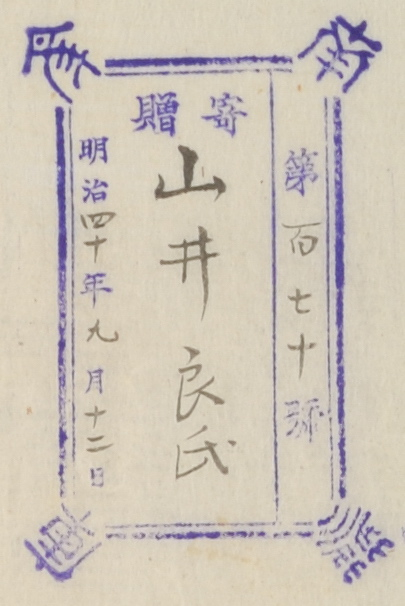 第一百七十號
寄贈
山井良氏
明治四十年九月十二日